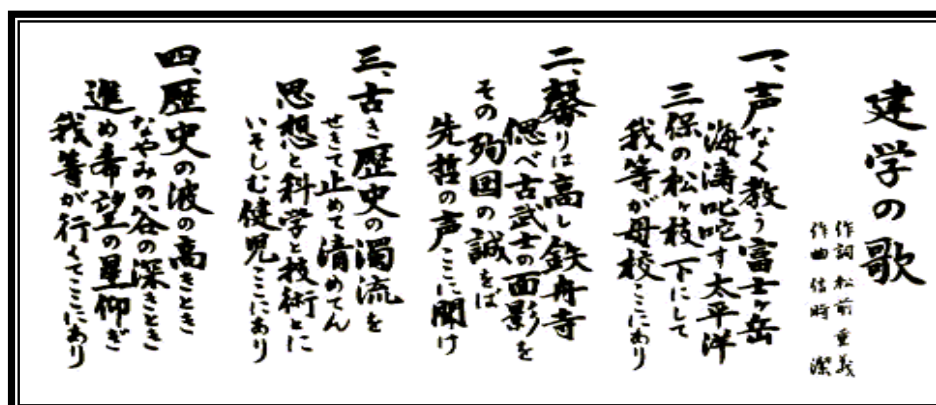 建学の歌
作詞 松前重義
作曲 信時潔
一、声なく教う富士ヶ岳
海濤叱咤す太平洋
三保の松ヶ枝下にして
我等が母校ここにあり
二、馨りは高し鉄舟寺
偲べ古武士の面影を
その殉国の誠をば
先哲の声ここに聞け
三、古き歴史の濁流を
せきて止めて清めてん
思想と科学と技術とに
いそしむ健児ここにあり
四、歴史の波の高きとき
なやみの谷の深きとき
進め希望の星仰ぎ
我等が行くてここにあり